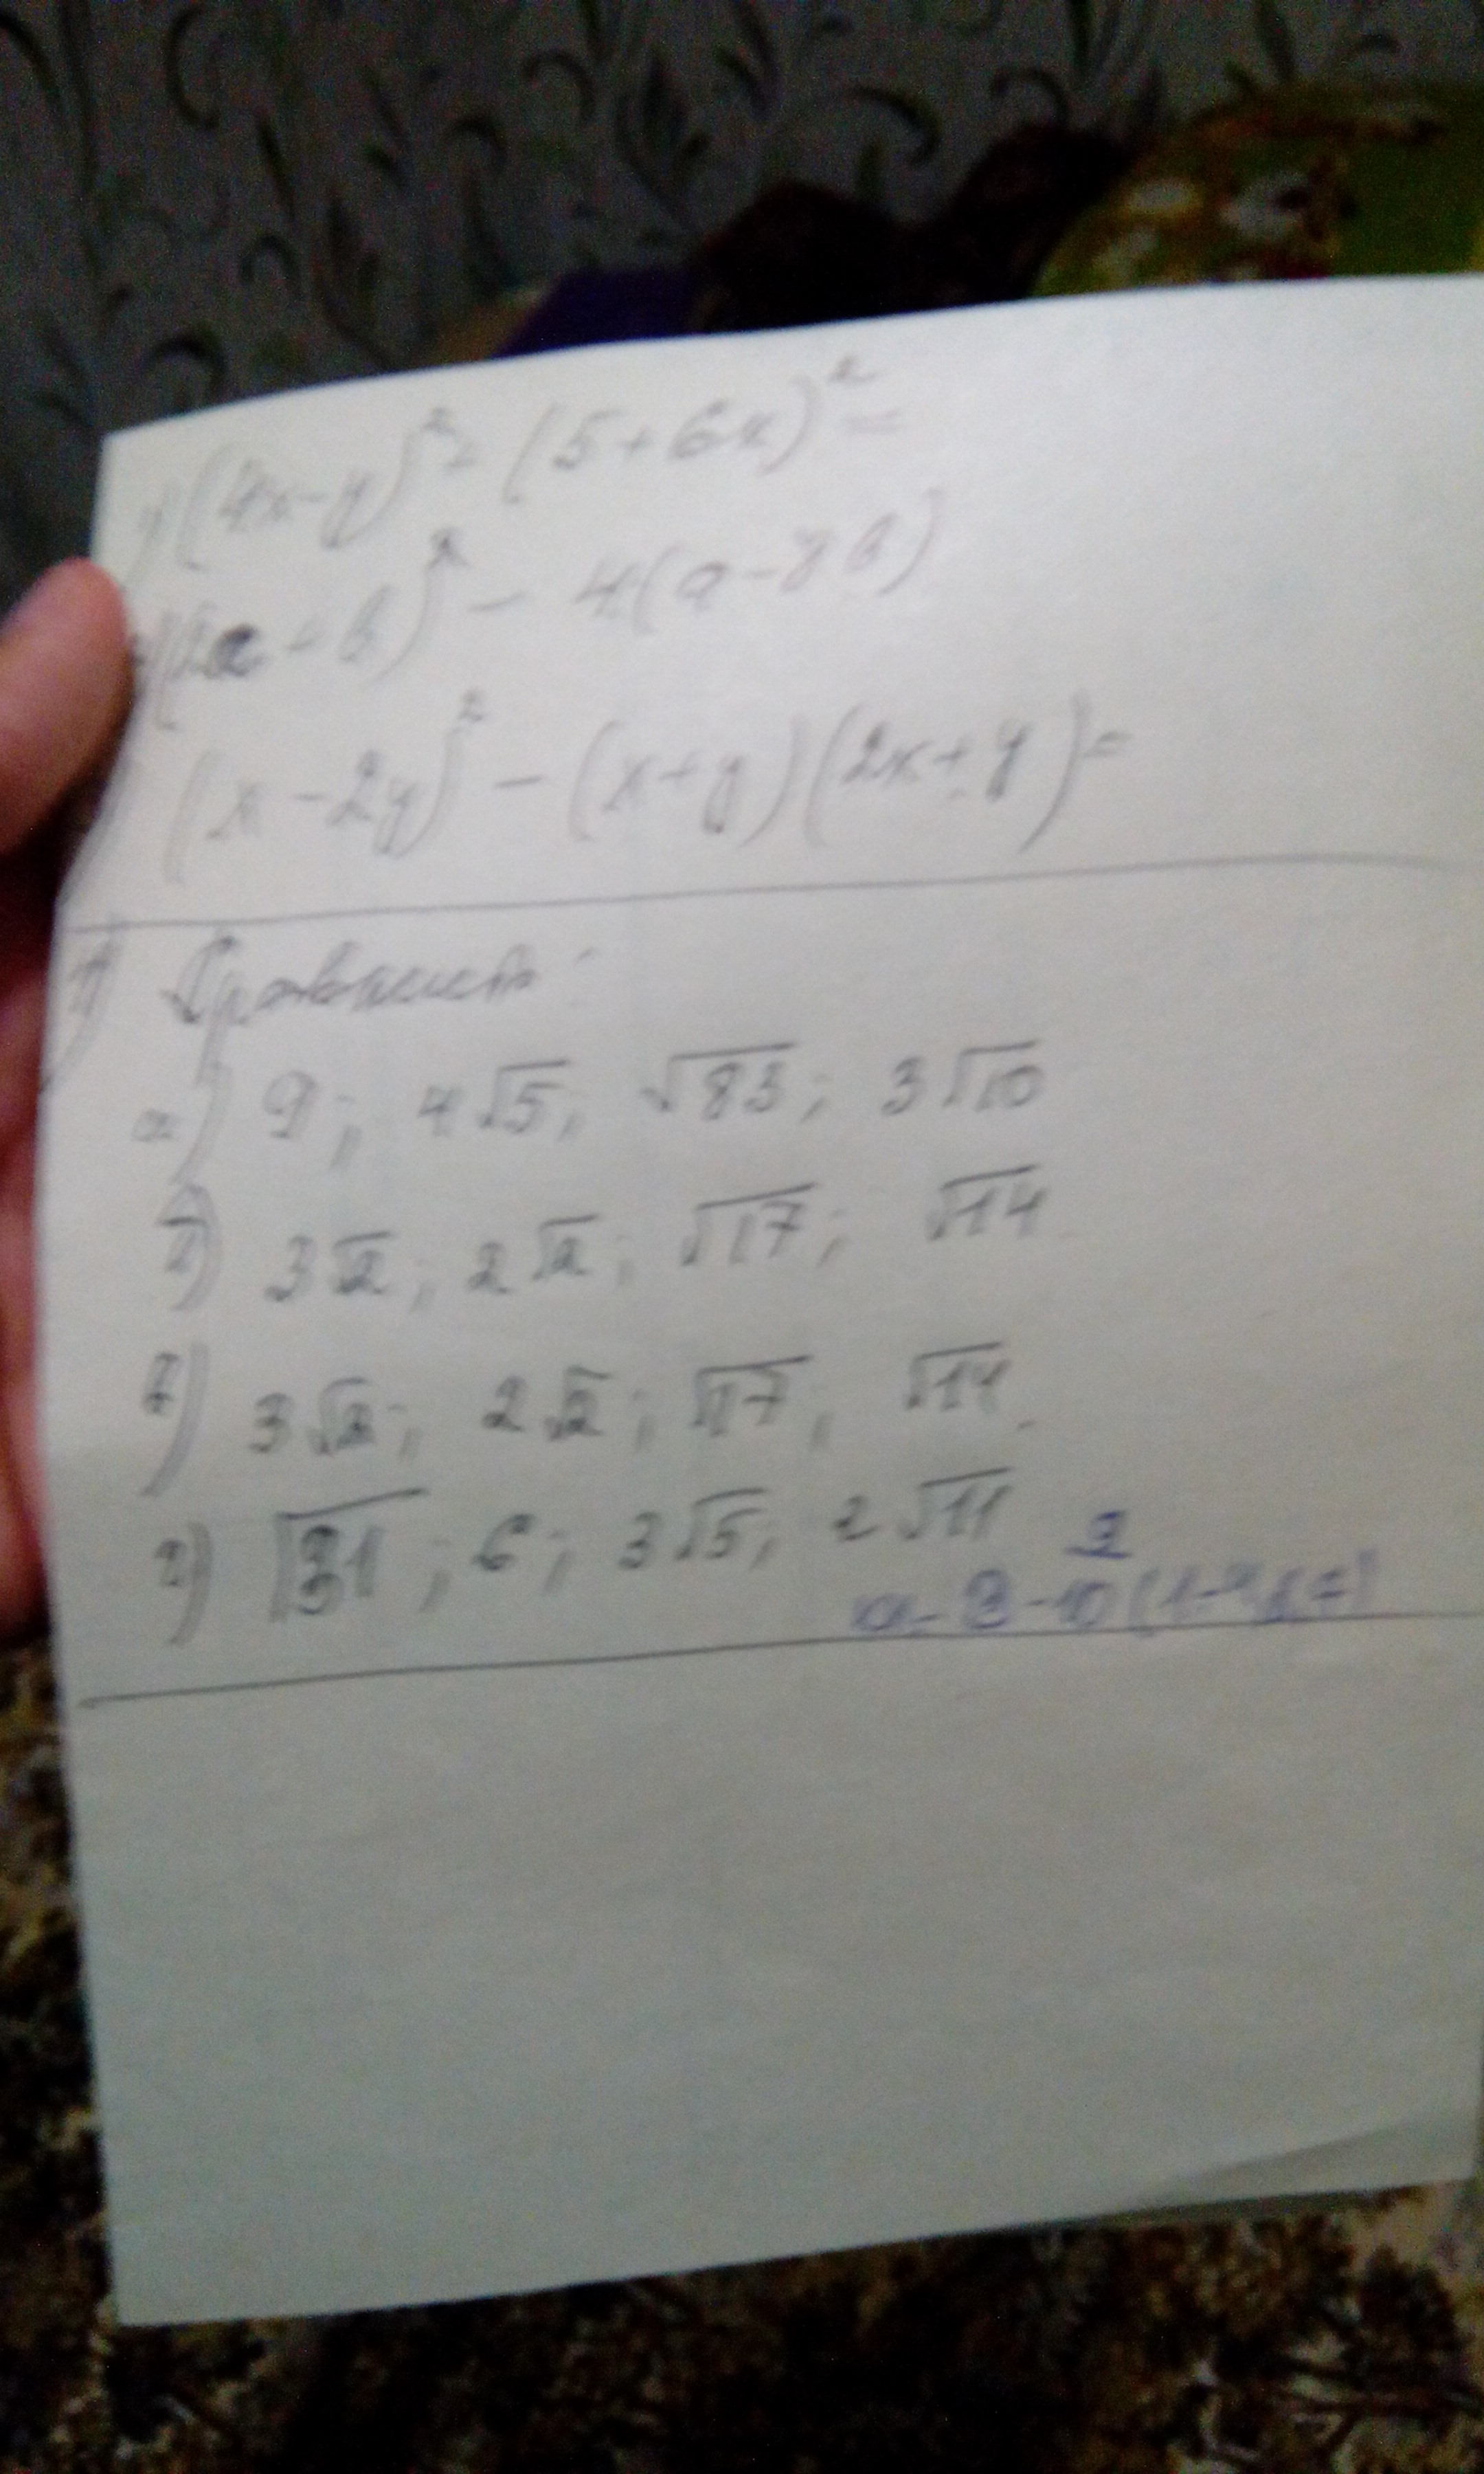 (4x-y)²+(5+6x)²=
(2a+b)²-4(a-7b)
(x-2y)²-(x+y)(2x+y)=
Сравнить:
а) 9; 4√5; √83; 3√10
б) 3√2; 2√2; √17; √14
в) 3√2; 2√2; √17; √14
г) √31; 6; 3√5; 2√11